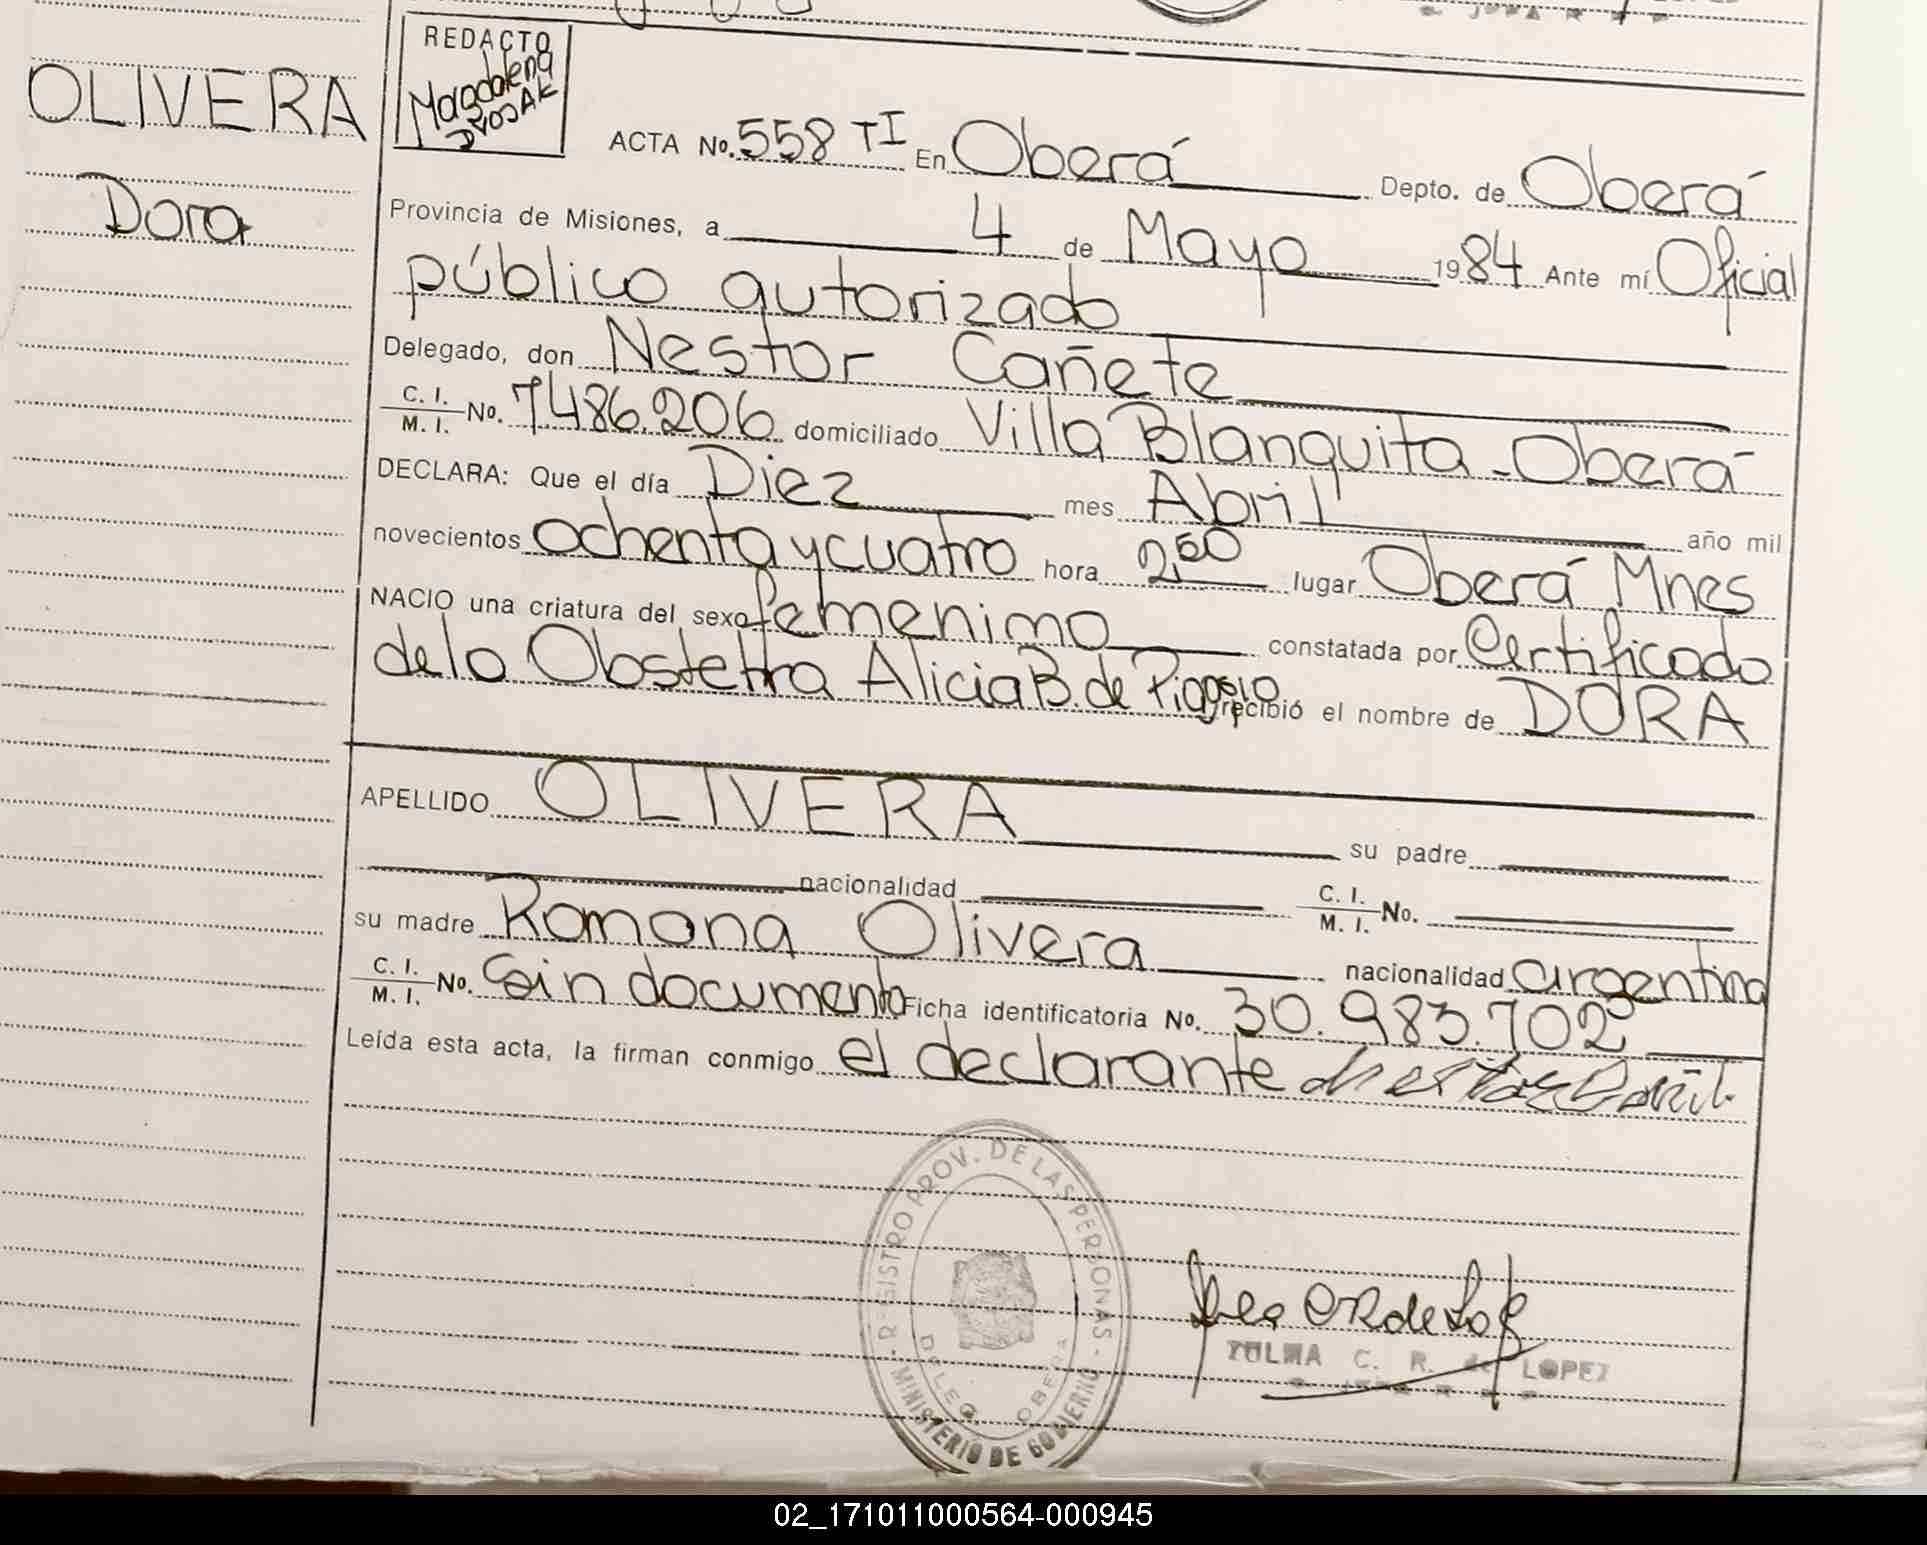 OLIVERA
Dora
REDACTO
Magdalena
DVOJAK
ACTA No. 558 TI En Oberá Depto. de Oberá
Provincia de Misiones, a 4 de Mayo 1984 Ante mí Oficial
público autorizado
Delegado, don Nestor Cañete
C. I.
M. I. No. 7.486.206 domiciliado Villa Blanquita - Oberá
DECLARA: Que el día Diez mes Abril año mil
novecientos ochenta y cuatro hora 2,50 lugar Oberá Mnes
NACIO una criatura del sexo femenino constatada por Certificado
de la Obstetra Alicia B. de recibió el nombre de DORA
APELLIDO OLIVERA su padre
nacionalidad C. I.
M. I. No.
su madre Ramona Olivera nacionalidad argentina
C. I.
M. I. No. Sin documento Ficha identificatoria No. 30.983.702
Leída esta acta, la firman conmigo el declarante
REGISTRO PROV. DE LAS PERSONAS - MINISTERIO DE GOBIERNO -
DELEG. OBERA
ZULMA C. R. de LOPEZ
02_171011000564-000945